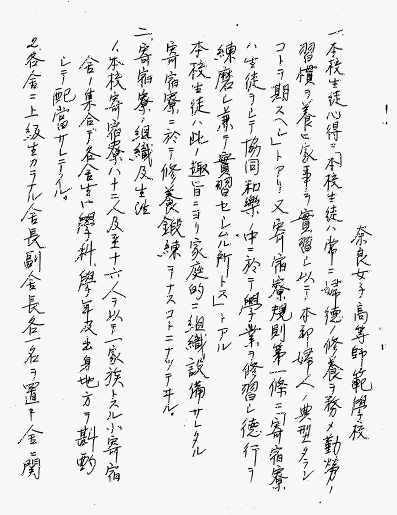 奈良女子高等師範學校
一、本校生徒心得ニ「本校生徒ハ常ニ婦徳ノ修養ヲ務メ勤勞ノ
習慣ヲ養ヒ家事ヲ實習シ以テ本邦婦人ノ典型タラン
コトヲ期スベシ」トアリ又寄宿寮規則第一條ニ「寄宿寮
ハ生徒ヲシテ協同和樂ノ中ニ於テ學業ヲ修習シ徳行ヲ
練磨シ兼テ實習セシムル所トス」トアル
本校生徒ハ此ノ趣旨ニヨリ家庭的ニ組織設備サレタル
寄宿寮ニ於テ修養鍛練ヲナスコトニナッテヰル。
二、寄宿寮ノ組織及生活
1.本校寄宿寮ハ十二人乃至十六人ヲ以テ一家族トスル小寄宿
舎ノ集合デ各舎生ハ學科、學年及出身地方ヲ斟酌
シテ配當サレテヰル。
2.各舎ニ上級生カラナル舎長副舎長各一名ヲ置キ舎ニ関